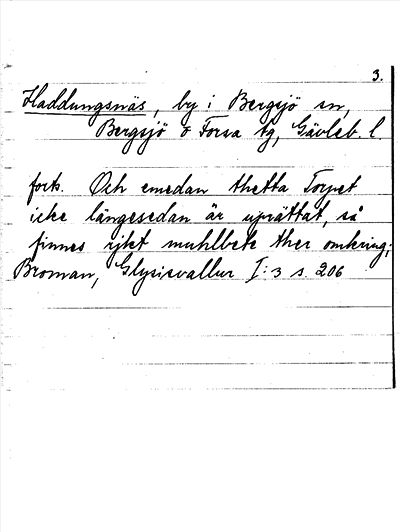 3.
Haddungsnäs, by i Bergsjö sn,
Bergsjö o Forsa tg, Gävleb. l.
forts. Och emedan thetta Torpet
icke längesedan är uprättat, så
finnes rijkt muhlbete ther omkring;
Broman, Glysisvallur I:3 s. 206